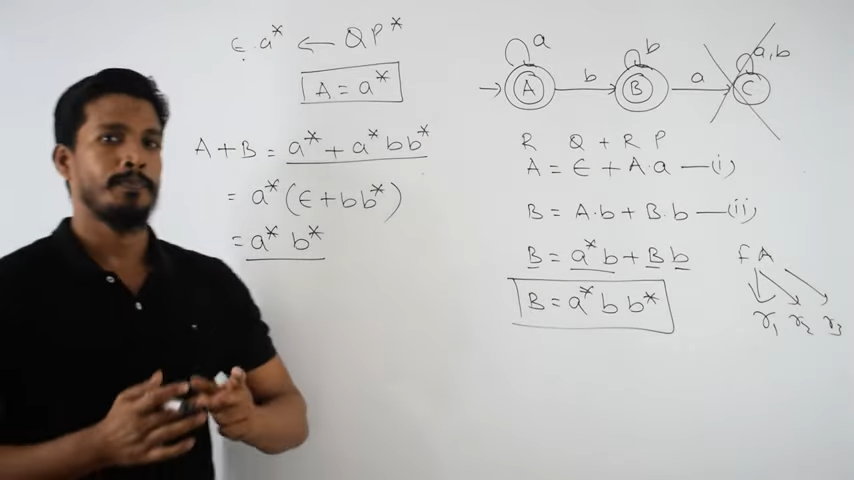 ϵ.a* ← QP*
A = a*
A+B = a* + a* b b*
= a* (ϵ + b b*)
= a* b*
a b a,b
A b B a C
R Q + R P
A = ϵ + A.a —(i)
B = A.b + B.b —(ii)
B = a* b + B b
B = a* b b*
FA
r₁ r₂ r₃